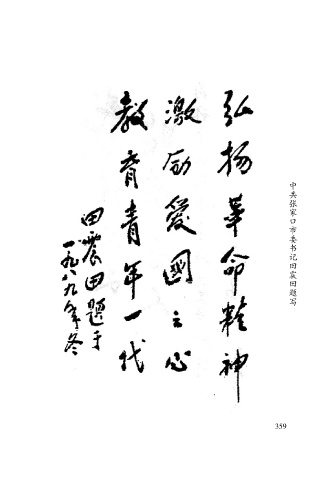 弘扬革命精神
激励爱國之心
教育青年一代
田震田题于
一九八九年冬
中共张家口市委书记田震田题写
359